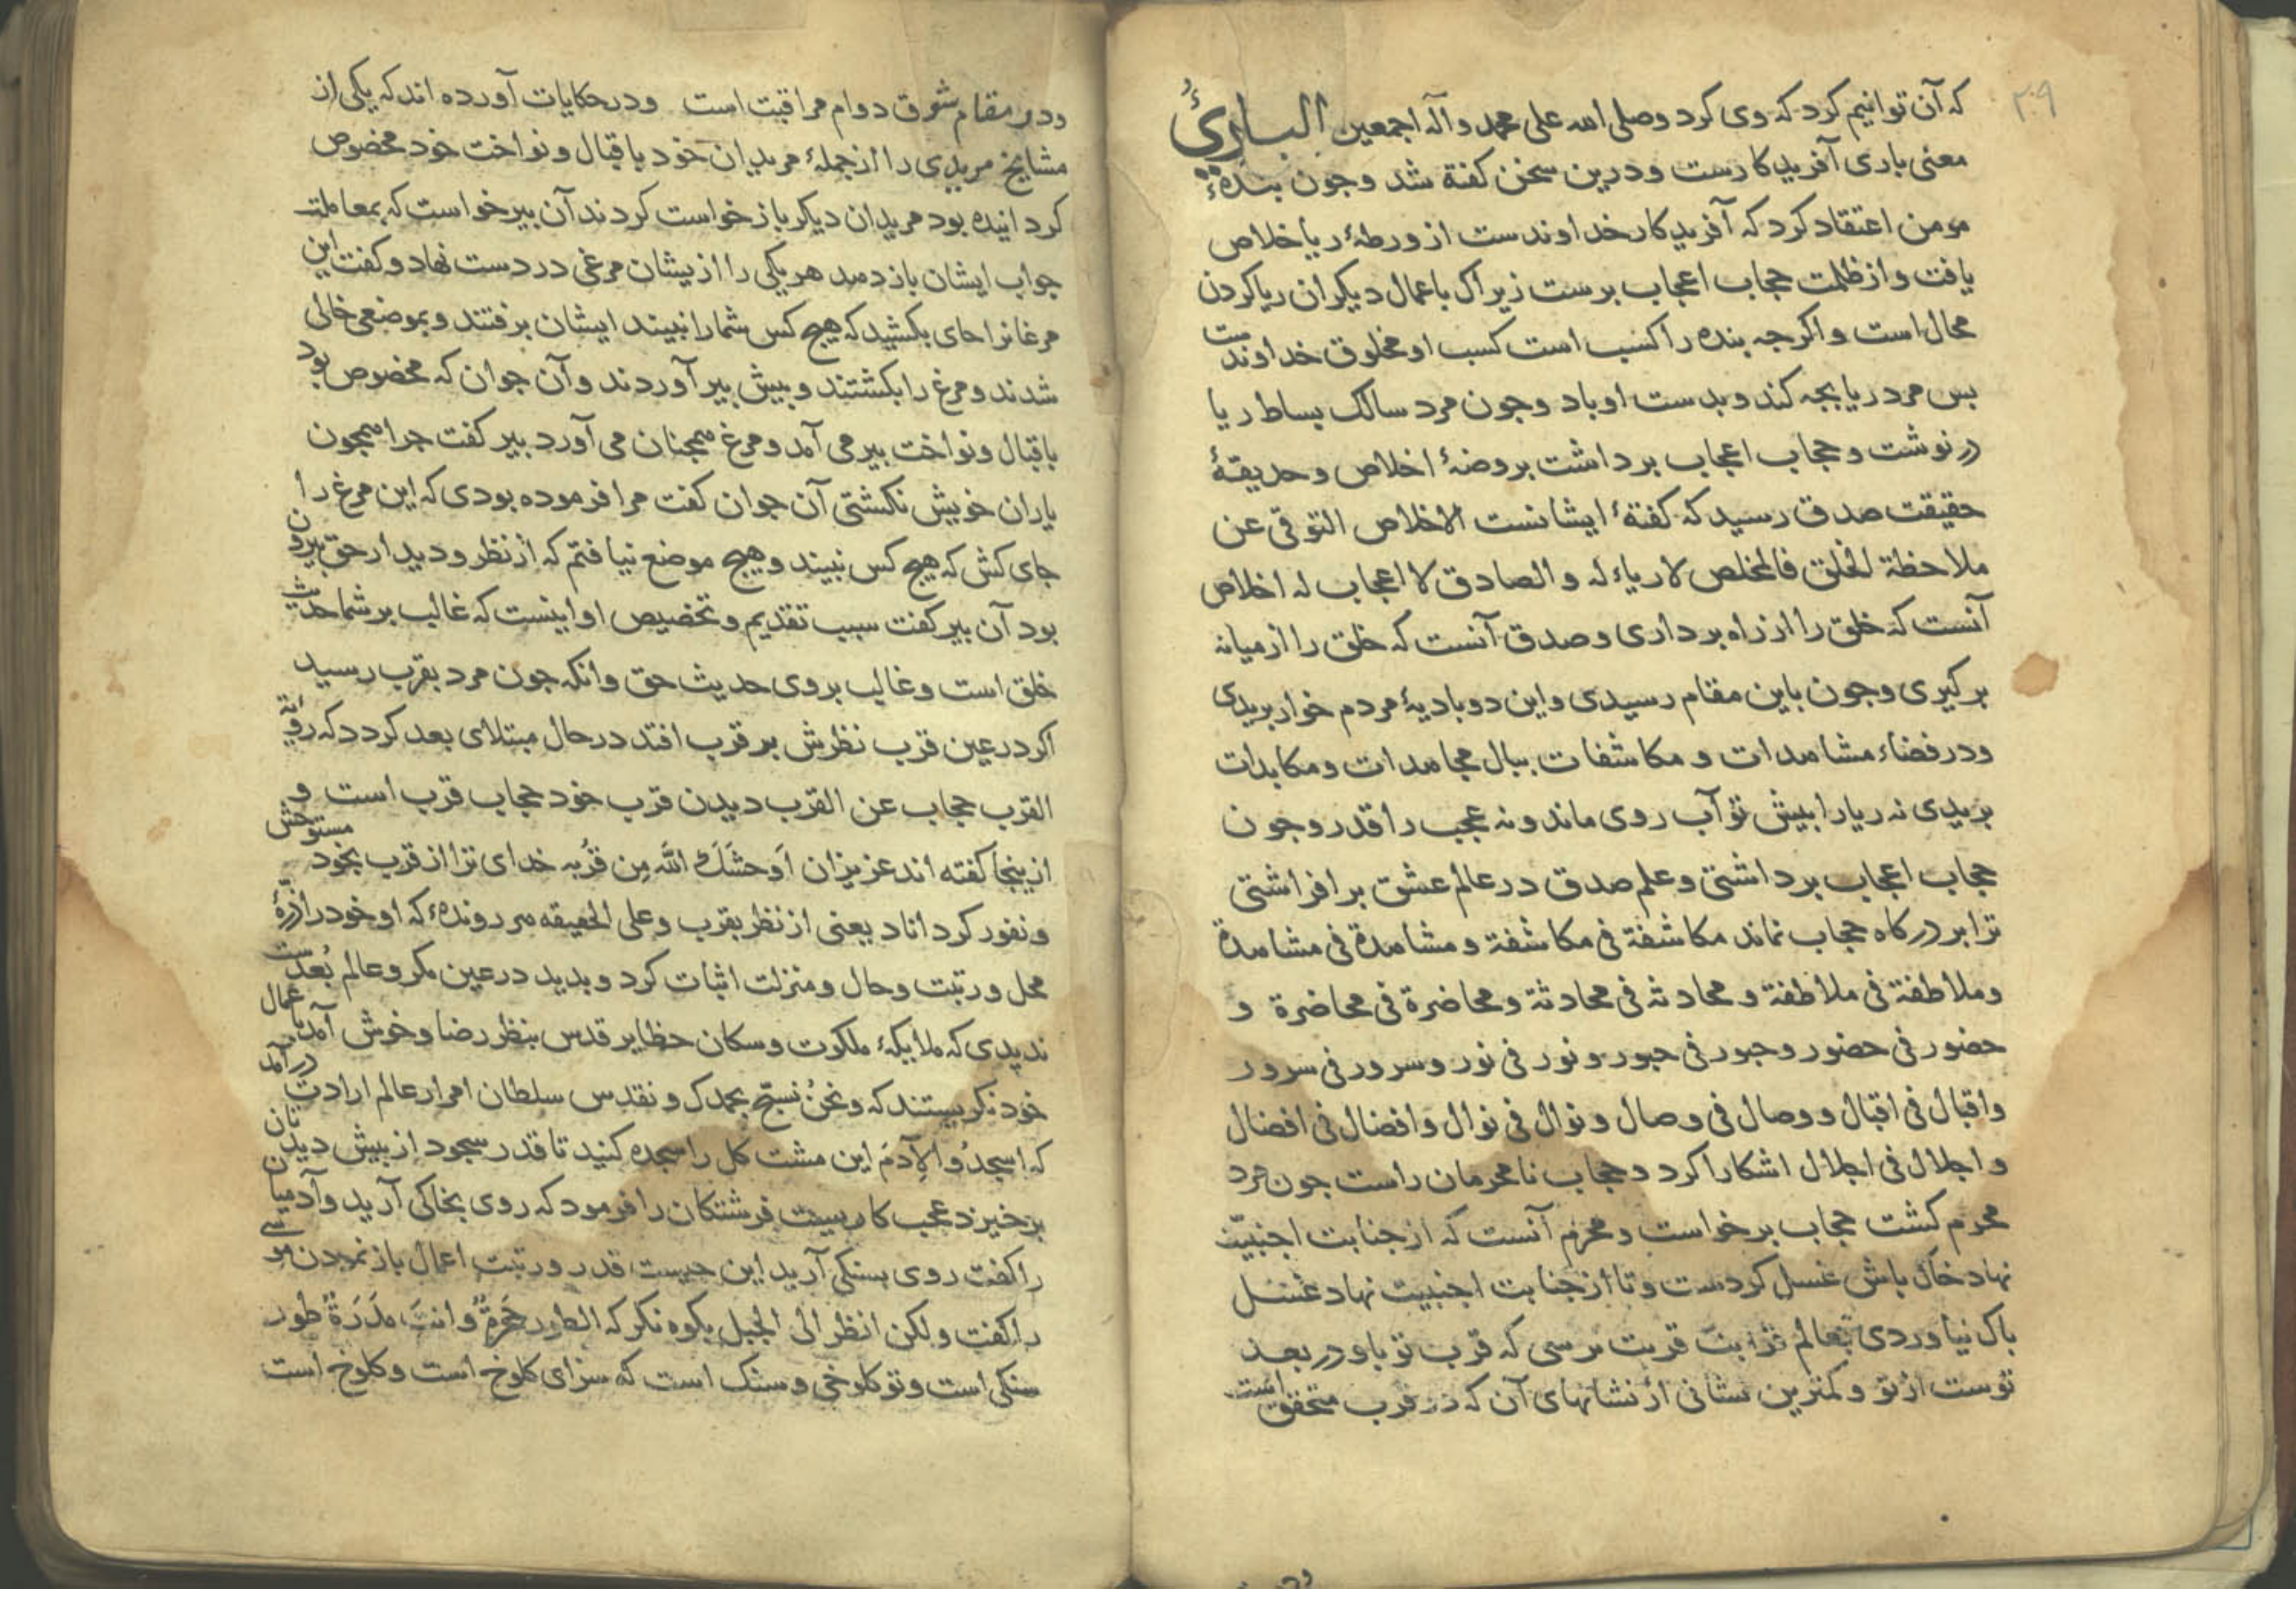 ۲۰۹
که آن توانیم کرد که وی کرد و صلی الله علی محمد وآله اجمعین البارئُ
معنی باری آفریدکارست و درین سخن کفته شد و جون بندهٔ
مومن اعتقاد کرد که آفریدکار خداوندست از ورطهٔ ریا خلاص
یافت و از ظلمت حجاب اعجاب برست زیراک باعمال دیکران ریا کردن
محال است و اکرجه بنده را کسب است کسب او مخلوق خداوندست
بس مرد ریا بجه کند و بدست او باد و جون مرد سالک بساط ریا
درنوشت و حجاب اعجاب برداشت بروضهٔ اخلاص و حدیقهٔ
حقیقت صدق رسید که کفتهٔ ایشانست الاخلاص التوقی عن
ملاحظة الخلق فالمخلص لا ریاء له و الصادق لا اعجاب له اخلاص
آنست که خلق را از راه برداری و صدق آنست که خلق را از میانه
برکیری و جون باین مقام رسیدی و این دو بادیهٔ مردم خوار بریدی
و در فضاء مشاهدات و مکاشفات ببال مجاهدات و مکابدات
بریدی نه ریا را بیش تو آب روی ماند و نه عجب را قدر و جون
حجاب اعجاب برداشتی و علم صدق در عالم عشق برافراشتی
ترا بر درکاه حجاب نماند مکاشفة فی مکاشفة و مشاهدة فی مشاهدة
و ملاطفة فی ملاطفة و محادثه فی محادثة و محاضرة فی محاضرة و
حضور فی حضور و حبور فی حبور و نور فی نور و سرور فی سرور
و اقبال فی اقبال و وصال فی وصال و نوال فی نوال و افضال فی افضال
و اجلال فی اجلال اشکارا کرد و حجاب نامحرمان راست جون مرد
محرم کشت حجاب برخواست و محرم آنست که از جنابت اجنبیّت
نهاد خاک باش غسل کردست و تا از جنابت اجنبیت نهاد غسل
باک نیاوردی بعالم قربت نرسی که قرب تو باو در بعد
توست از تو و کمترین نشانی از نشانهای آن که در قرب متحقق است
و در مقام شوق دوام مراقبت است و در حکایات آورده اند که یکی از
مشایخ مریدی را از جملهٔ مریدان خود باقبال و نواخت خود مخصوص
کردانیده بود مریدان دیکر بازخواست کردند آن بیر خواست که بمعاملت
جواب ایشان باز دهد هر یکی را از یشان مرغی در دست نهاد و کفت این
مرغانرا جای بکشید که هیج کس شمارا نبیند ایشان برفتند و بموضعی خالی
شدند و مرغ را بکشتند و بیش بیر آوردند و آن جوان که مخصوص بود
باقبال و نواخت بیر می آمد و مرغ همجنان می آورد بیر کفت جرا همجون
یاران خویش نکشتی آن جوان کفت مرا فرموده بودی که این مرغ را
جای کش که هیج کس نبیند و هیج موضع نیافتم که از نظر و دیدار حق بیرون
بود آن بیر کفت سبب تقدیم و تخصیص او اینست که غالب بر شما حدیث
خلق است و غالب بر وی حدیث حق و انکه جون مرد بقرب رسید
اکر در عین قرب نظرش بر قرب افتد در حال مبتلای بعد کردد که رؤیة
القرب حجاب عن القرب دیدن قرب خود حجاب قرب است و
ازینجا کفته اند عزیزان اَوحشَکَ اللّه مِن قُربه خدای ترا از قرب بخود مستوحش
و نفور کرداناد یعنی از نظر بقرب و علی الحقیقه هر روندهٔ که او خود را ذرّهٔ
محل و رتبت و حال و منزلت اثبات کرد و بدید در عین مکر و عالم بُعدست
ندیدی که ملایکهٔ ملکوت و سکان حظایر قدس بنظر رضا و خوش آمد باعمال
خود نکریستند که و نحنُ نسبّح بحمدک و نقدس سلطان امر از عالم ارادت درآمد
که اسجدُوا لِآدمَ این مشت کل را سجده کنید تا قدر سجود از بیش دیدتان
برخیزد عجب کاریست فرشتکان را فرمود که روی بخاکی آرید و آدمیان
را کفت روی بسنکی آرید این جیست قدر و رتبت اعمال باز نمودن موسی
را کفت و لکن انظر الی الجبل بکوه نکر که الطور حَجرةٌ و انتَ مدَرَةٌ طور
سنکی است و تو کلوخی و سنک است که سزای کلوخ است و کلوخ است